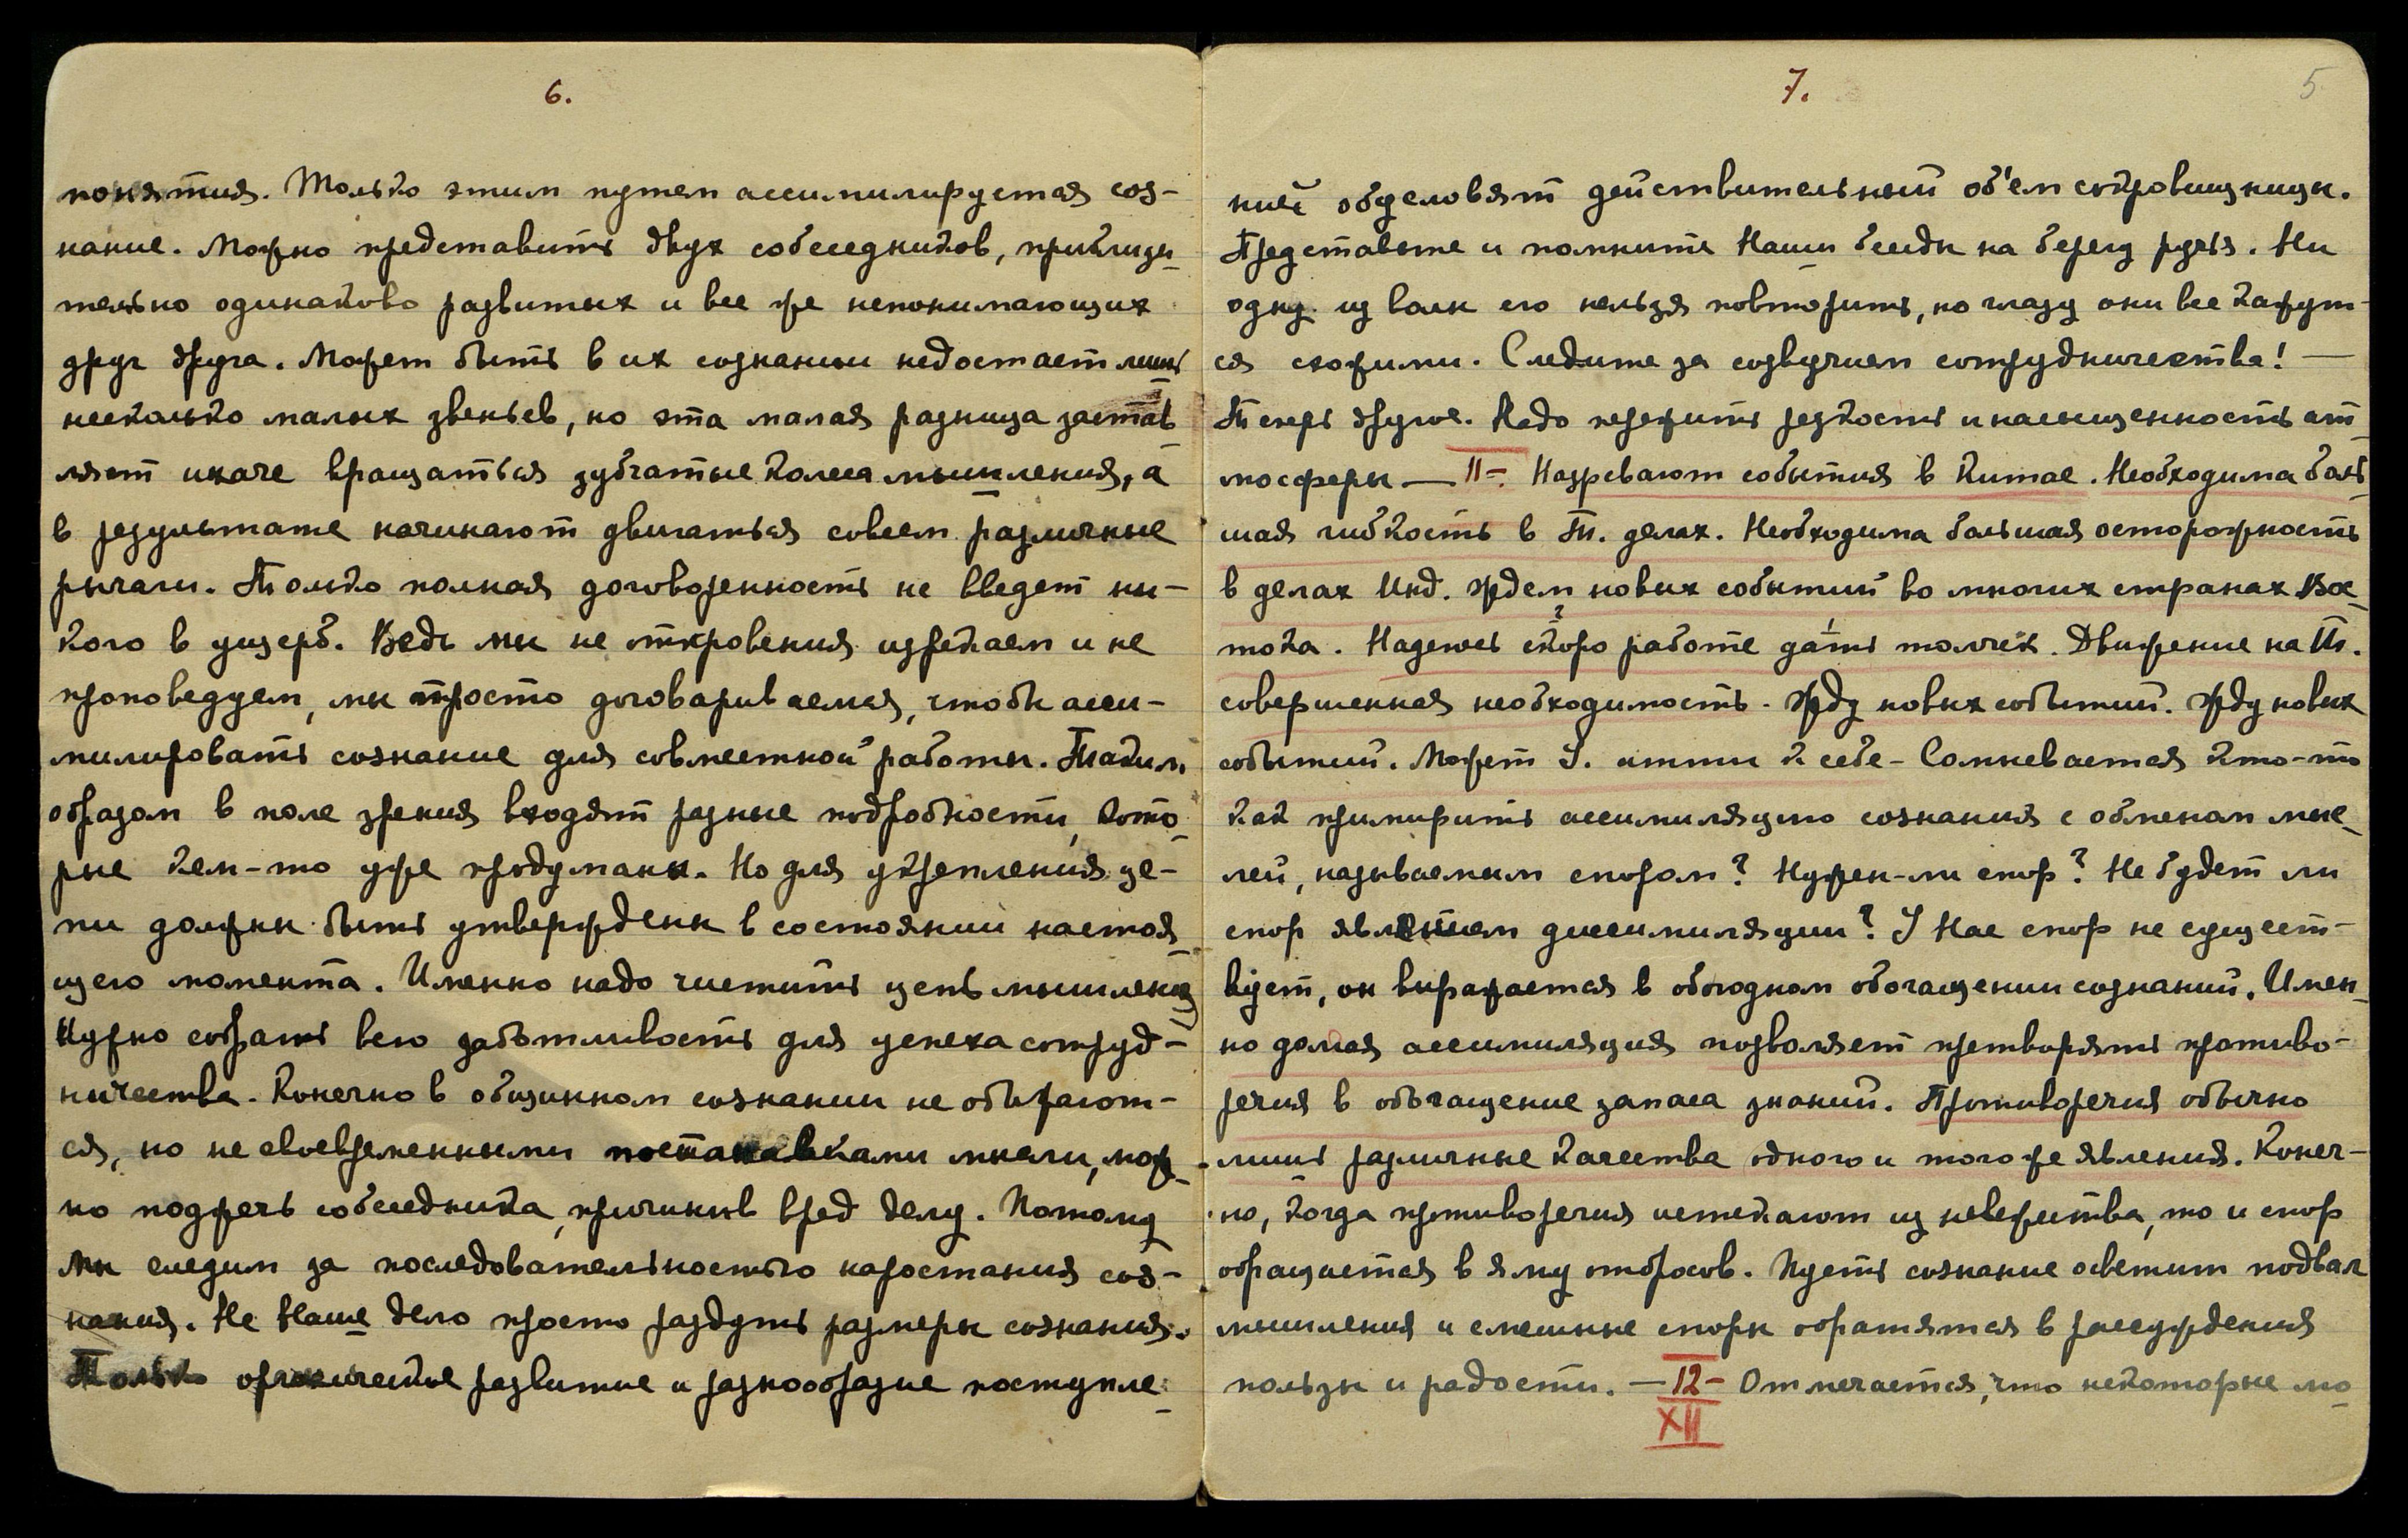 6.
понятия. Только этим путем ассимилируется соз-
нание. Можно представить двух собеседников, приблизи-
тельно одинаково развитых и все же непонимающих
друг друга. Может быть в их сознании недостает лишь
несколько малых звеньев, но эта малая разница застав-
ляет иначе вращаться зубчатые колеса мышления, а
в результате начинают двигаться совсем различные
рычаги. Только полная договоренность не введет ни-
кого в ущерб. Ведь мы не откровения изрекаем и не
проповедуем, мы просто договариваемся, чтобы асси-
милировать сознание для совместной работы. Таким
образом в поле зрения входят разные подробности, кото-
рые кем-то уже продуманы. Но для укрепления це-
пи должны быть утверждены в состоянии настоя-
щего момента. Именно надо чистить цепь мышления
Нужно собрать всю заботливость для успеха сотруд-
ничества. Конечно в общинном сознании не обижают-
ся, но не своевременными поставками мысли, мож-
но поджечь собеседника, причинив вред делу. Потому
Мы следим за последовательностью наростания соз-
нания. Не Наше дело просто раздуть размеры сознания.
Только органическое развитие и разнообразие поступле-
7.
5
ний обусловят действительный об'ем сокровищницы.
Представьте и помните Наши беседы на берегу ручья. Ни
одну из волн его нельзя повторить, но глазу они все кажут-
ся схожими. Следите за созвучием сотрудничества! —
Теперь другое. Надо пережить резкость и насыщенность ат-
мосферы — 11 -. Назревают события в Китае. Необходима боль-
шая гибкость в Т. делах. Необходима большая осторожность
в делах Инд. Ждем новых событий во многих странах Вос-
тока. Надеюсь скоро работе дать толчек. Движение на Т.
совершенная необходимость. Жду новых событий. Жду новых
событий. Может У. итти к себе - Сомневается кто-то
как примирить ассимиляцию сознания с обменом мыс-
лей, называемым спором? Нужен-ли спор? Не будет ли
спор явлением диссимиляции? У Нас спор не сущест-
вует, он выражается в обоюдном обогащении сознаний. Имен-
но ассимиляция позволяет претворять противо-
речия в обогащение запаса знаний. Противоречия обычно
лишь различные качества одного и того же явления. Конеч-
но, когда противоречия истекают из невежества, то и спор
обращается в яму отбросов. Пусть сознание осветит подвал
мышления и смешные споры обратятся в рассуждения
пользы и радости. — 12 - Отмечается, что некоторые мо-
XII